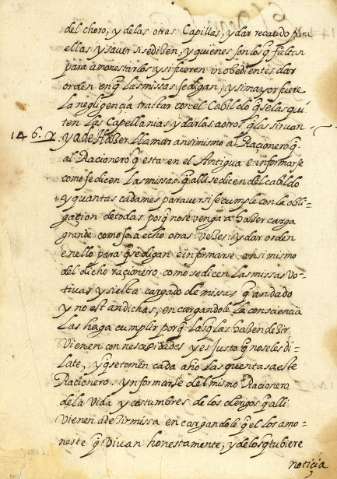 del choro, y de las otras Capillas, y dar recaudo para
ellas y sauer si se diçen, y quienes son los q̃ faltan
para amonestarlos y si fueren inobedientes dar
orden en q̃ las missas se digan, y si mayor fuere
la negligencia tratar con el Cabildo q̃ se las qui
ten las Capellanias y darlas a otros q̃ las siruan
146. y a de haber llamar ansimismo al Racionero q̃
al Racionero q̃ esta en el Antigua e informarse
como se dicen las missas q̃ alli se dicen del cabildo
y quantas cada mes para uer si se cumple con la obli
gacion de todas porq̃ no se venga a haber carga
grande como se a echo otras veses y dar orden
en ello para q̃ se digan e informarse ansi mismo
del dicho racionero como se dicen las missas vo
tiuas y si el se a cargado de misses q̃ an dado
y no est an dichas, encargandole la consciencia
las haga cumplir porq̃ las q̃ las han de dezir
vienen con necesidades y es justo q̃ no se les di
late, y q̃ se tomen cada año las quentas a este
Racionero: y ynformarse del mismo Racionero
de la vida y costumbres de los clerigos q̃ alli
vienen a dezir missa encargandole q̃ el los amo
neste q̃ Biuan honestamente, y de los q̃ tubiere
noticia